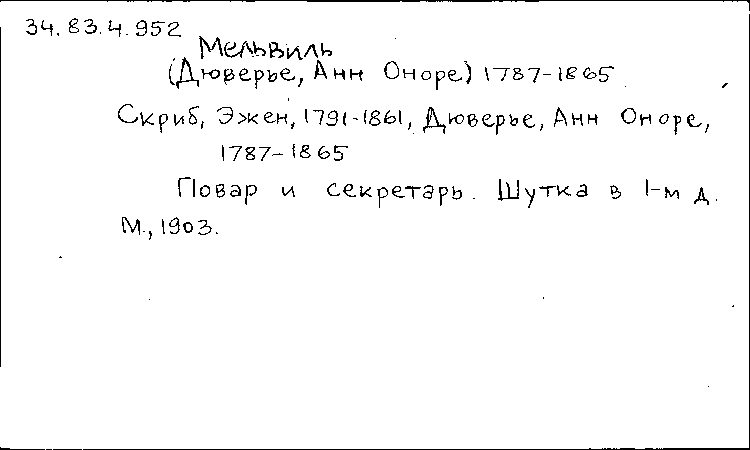 34.83.4.952
Мельвиль
(Дюверье, Анн Оноре) 1787-1865
Скриб, Эжен, 1791-1861, Дюверье, Анн Оноре,
1787-1865
Повар и секретарь. Шутка в 1-м д.
М., 1903.